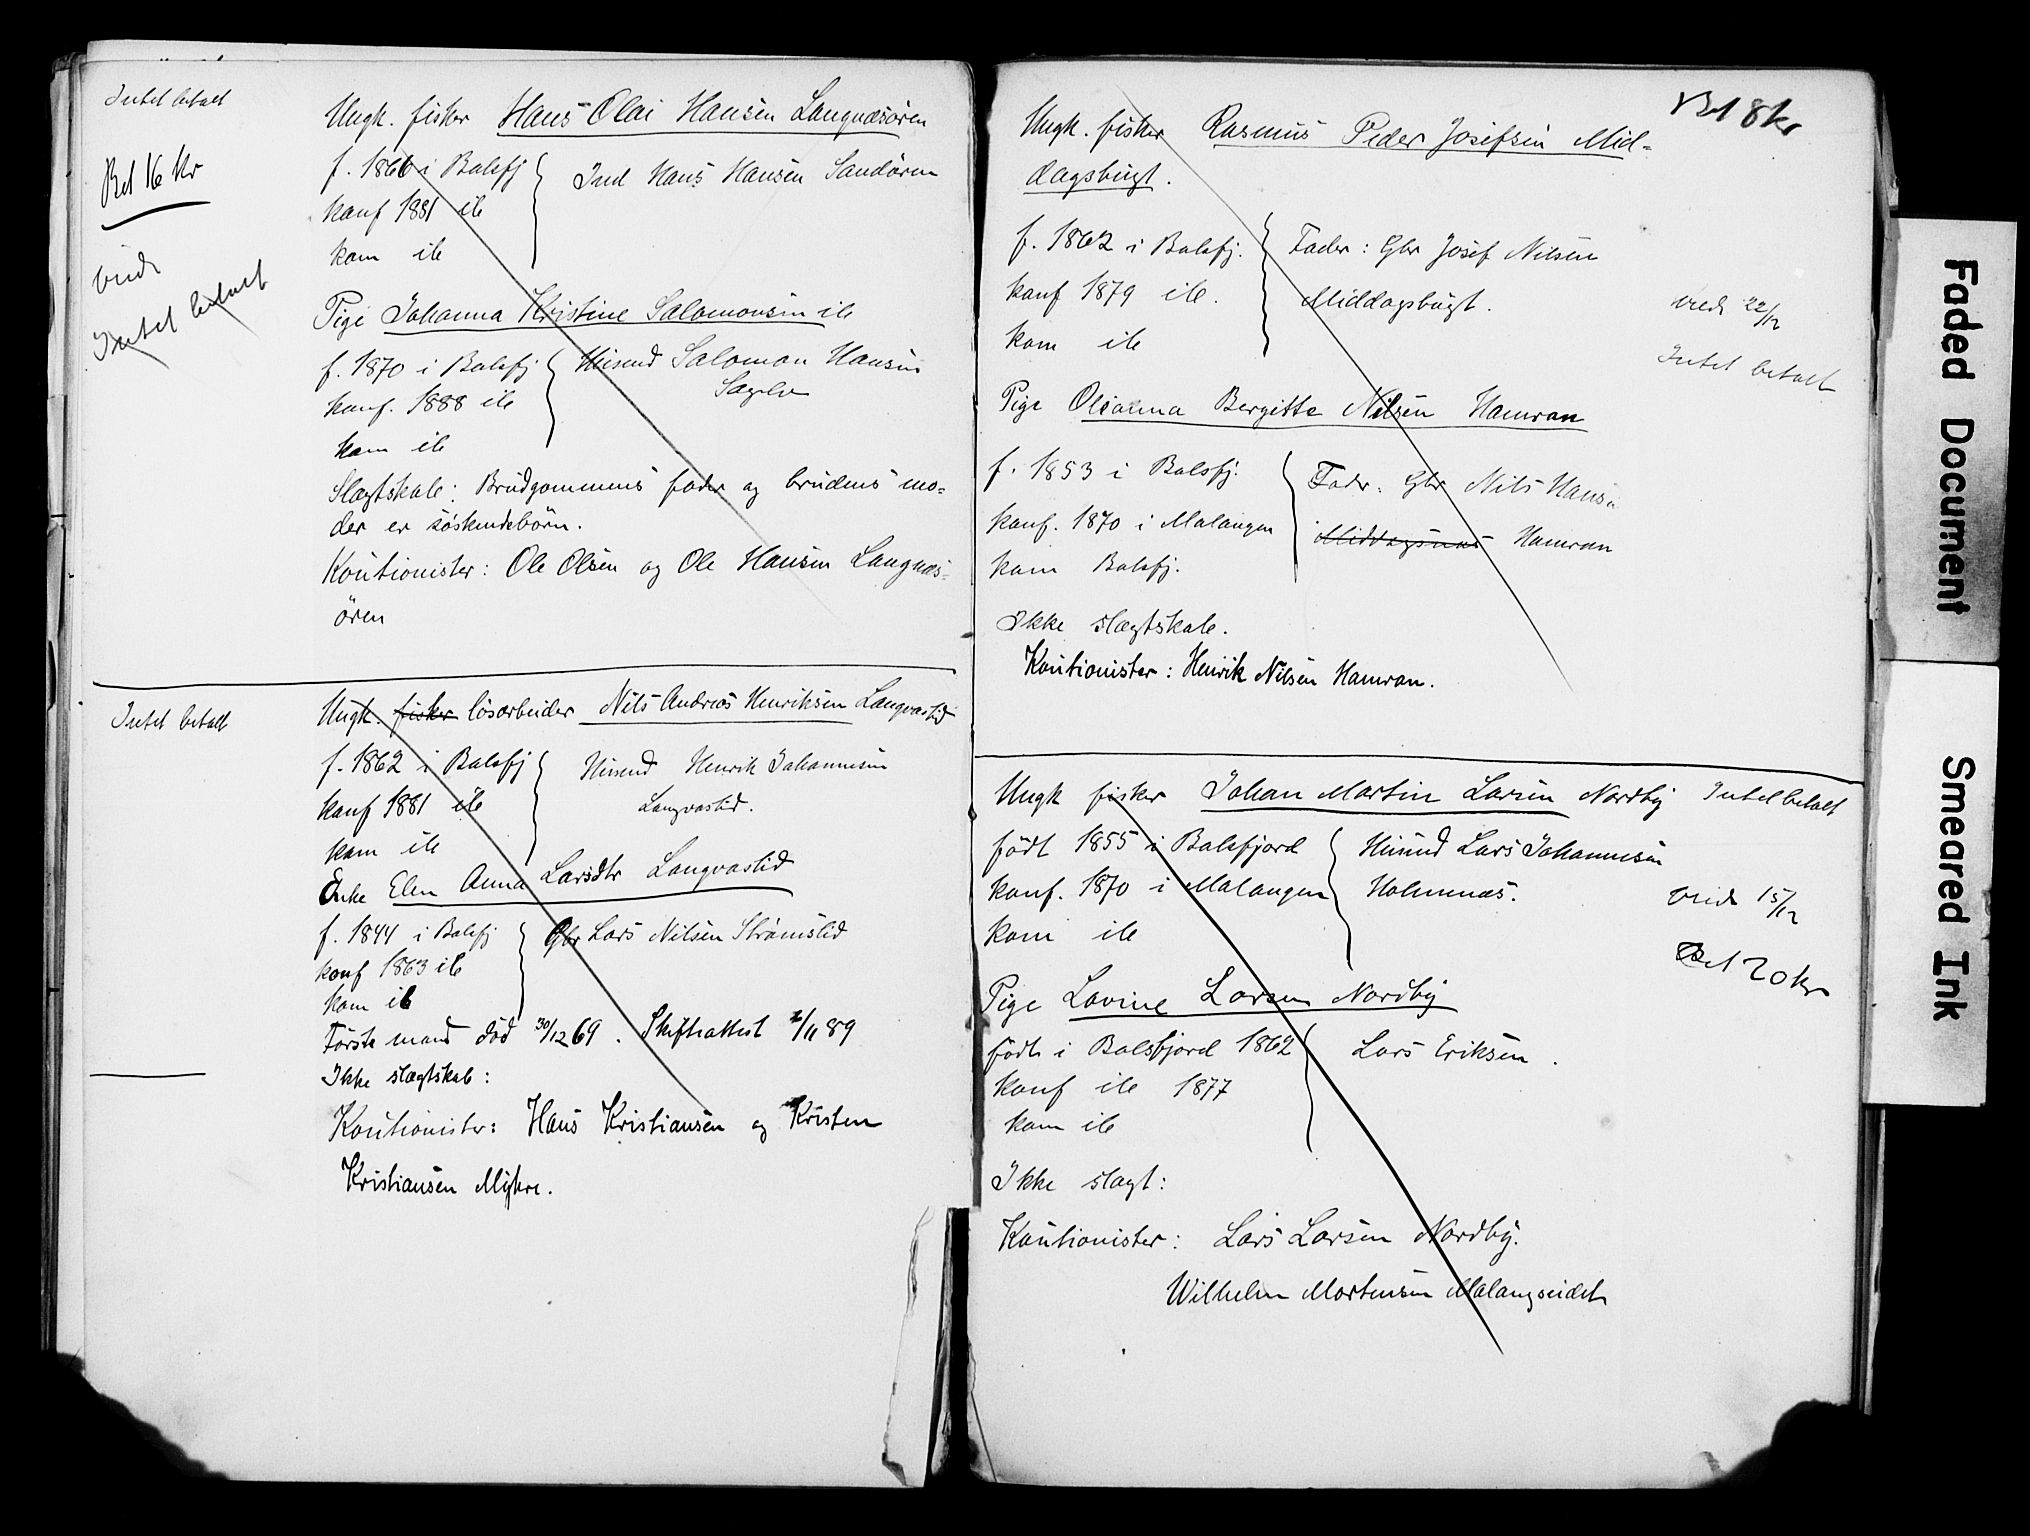 Intet betalt
Bet 16 kr
viede
Intet betalt
Ungk. fisker Hans Olai Hansen Langnæsören
f. 1866 i Balsfj
konf 1881 ib
kom ib
Ind Hans Hansen Sandören
Pige Johanna Kristine Salomonsen ib
f. 1870 i Balsfj
konf. 1888 ib
kom ib
Husmd Salomon Hansen
Sagelv
Slægtskab: Brudgommens fader og brudens mo-
der er söskendebörn.
Koutionister: Ole Olsen og Ole Hansen Langnæs-
ören
Intet betalt
Ungk. fisker lösarbeider Nils Andreas Henriksen Langvastid
f. 1862 i Balsfj
konf 1881 ib
kom ib
Husmd Henrik Johannesen
Langvastid.
Enke Elen Anna Larsdtr Langvastid
f. 1844 i Balsfj
konf 1863 ib
kom ib
Gbr Lars Nilsen Strömslid
Förste mand död 30/12 69. Skifteattest /11 89
Ikke slægtskab:
Koutionister: Hans Kristiansen og Kristen
Kristiansen Myhre.
Bet 8 kr
Ungk. fisker Rasmus Peder Josefsen Mid-
dagsbugt.
f. 1862 i Balsfj.
konf 1879 ib.
kom ib
Fader: Gbr Josef Nilsen
Middagsbugt.
viede 22/12
Intet betalt
Pige Oleanna Bergitte Nilsen Hamran
f. 1853 i Balsfj.
konf. 1870 i Malangen
kom Balsfj.
Fader: Gbr Nils Hansen
Middagsnes Hamran
Ikke slægtskab.
Koutionister: Henrik Nilsen Hamran.
Ungk fisker Johan Martin Larsen Nordby
Intet betalt
födt 1855 i Balsfjord
konf. 1870 i Malangen
kom ib
Husmd Lars Johannesen
Holmenæs.
viede 15/12
Bet 20 kr
Pige Lovine Larsen Nordby
födt i Balsfjord 1862
konf ib 1877
kom ib
Lars Eriksen.
Ikke slægt:
Koutionister: Lars Larsen Nordby.
Wilhelm Mortensen Malangseidet
Faded Document
Smeared Ink